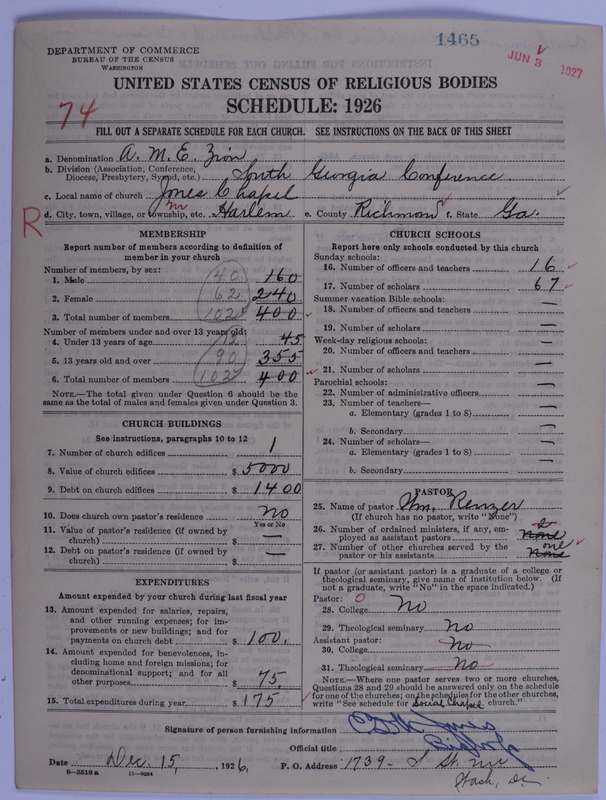 1465
JUN 3 1927
DEPARTMENT OF COMMERCE
BUREAU OF THE CENSUS
WASHINGTON
UNITED STATES CENSUS OF RELIGIOUS BODIES
SCHEDULE: 1926
74
FILL OUT A SEPARATE SCHEDULE FOR EACH CHURCH. SEE INSTRUCTIONS ON THE BACK OF THIS SHEET
a. Denomination A. M. E. Zion
b. Division (Association, Conference, Diocese, Presbytery, Synod, etc.) South Georgia Conference.
c. Local name of church Jones Chapel
R
d. City, town, village, or township, etc. Harlem e. County Richmond f. State Ga.
MEMBERSHIP
Report number of members according to definition of member in your church
Number of members, by sex:
1. Male 40 160
2. Female 62 240
3. Total number of members 102 400
Number of members under and over 13 years old:
4. Under 13 years of age 12 45
5. 13 years old and over 90 355
6. Total number of members 102 400
NOTE.—The total given under Question 6 should be the same as the total of males and females given under Question 3.
CHURCH BUILDINGS
See instructions, paragraphs 10 to 12
7. Number of church edifices 1
8. Value of church edifices $ 5000
9. Debt on church edifices $ 1400
10. Does church own pastor's residence? no
Yes or No
11. Value of pastor's residence (if owned by church) $ —
12. Debt on pastor's residence (if owned by church) $ —
EXPENDITURES
Amount expended by your church during last fiscal year
13. Amount expended for salaries, repairs, and other running expenses; for improvements or new buildings; and for payments on church debt $ 100.
14. Amount expended for benevolences, including home and foreign missions; for denominational support; and for all other purposes $ 75
15. Total expenditures during year $ 175
CHURCH SCHOOLS
Report here only schools conducted by this church
Sunday schools:
16. Number of officers and teachers 16
17. Number of scholars 67
Summer vacation Bible schools:
18. Number of officers and teachers —
19. Number of scholars —
Week-day religious schools:
20. Number of officers and teachers —
21. Number of scholars —
Parochial schools:
22. Number of administrative officers —
23. Number of teachers—
a. Elementary (grades 1 to 8) —
b. Secondary —
24. Number of scholars—
a. Elementary (grades 1 to 8) —
b. Secondary —
PASTOR
25. Name of pastor Wm. Renzer
(If church has no pastor, write "None")
26. Number of ordained ministers, if any, employed as assistant pastors 2 None
27. Number of other churches served by the pastor or his assistants one None
If pastor (or assistant pastor) is a graduate of a college or theological seminary, give name of institution below. (If not a graduate, write "No" in the space indicated.)
Pastor: 0
28. College No
29. Theological seminary No
Assistant pastor:
30. College No
31. Theological seminary No
NOTE.—Where one pastor serves two or more churches, Questions 28 and 29 should be answered only on the schedule for one of the churches; on the schedules for the other churches, write "See schedule for Chapel church."
Signature of person furnishing information
Official title Bishop
Date Dec. 15, 1926. P. O. Address 1739- St. NW
8—5518a 11—9034
Wash, DC